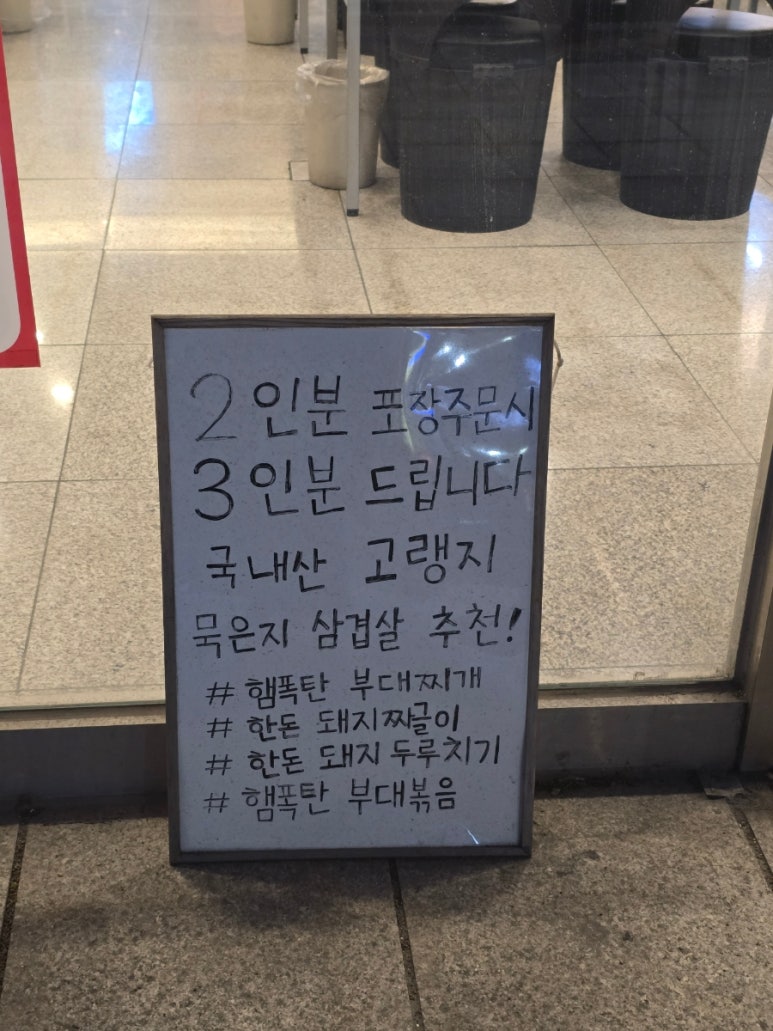 2인분 포장주문시
3인분 드립니다
국내산 고랭지
묵은지 삼겹살 추천!
# 햄폭탄 부대찌개
# 한돈 돼지짜글이
# 한돈 돼지 두루치기
# 햄폭탄 부대볶음